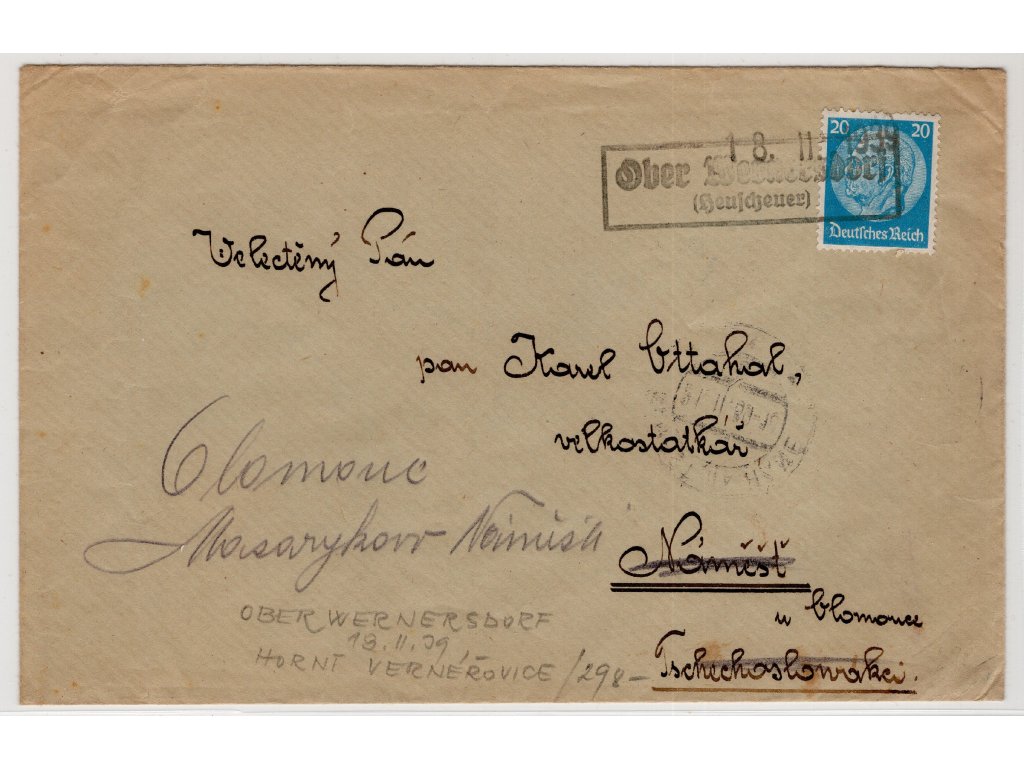 20 20
18. II. 1939
Ober Wernersdorf
(Heuscheuer)
Deutsches Reich
Velectěný Pán
pan Karel Ottahal,
velkostatkář
Olomouc
Masarykovo Náměstí
Náměšť
u Olomouce
Tschechoslowakei.
OBER WERNERSDORF
18.II.39
HORNÍ VERNÉŘOVICE /298-